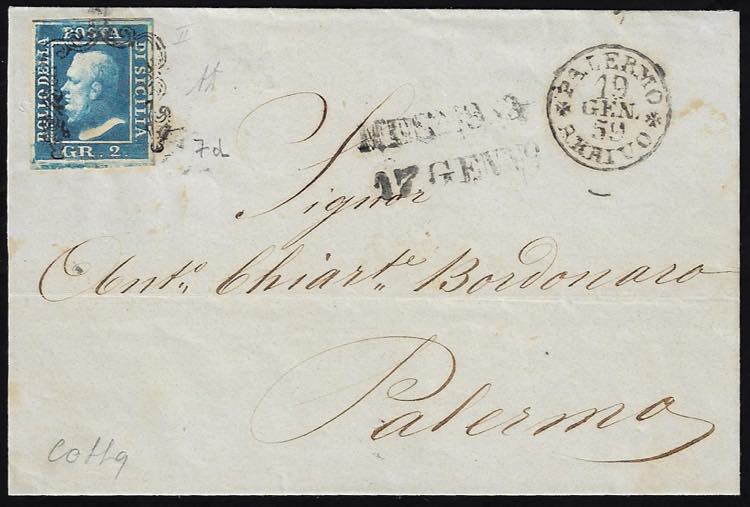 BOLLO DELLA
POSTA
DI SICILIA
GR. 2.
II
7d
MESSINA
17 GENNO
PALERMO
19
GEN.
59
ARRIVO
Signor
Ant.o Chiar.te Bordonaro
Palermo